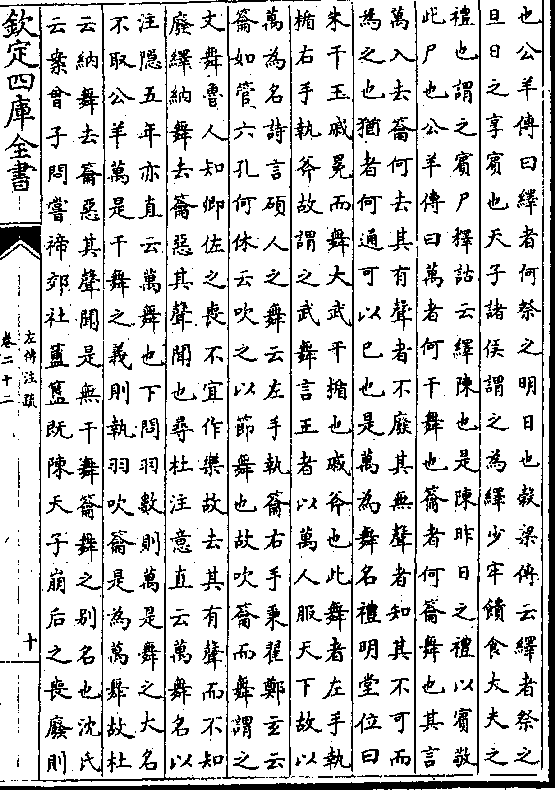 也公羊傳曰繹者何祭之明日也穀梁傳云繹者祭之
旦日之享賓也天子諸侯謂之為繹少牢饋食大夫之
禮也謂之賓尸釋詁云繹陳也是陳昨日之禮以賓敬
此尸也公羊傳曰萬者何干舞也籥者何籥舞也其言
萬入去籥何去其有聲者不廢其無聲者知其不可而
為之也猶者何通可以已也是萬為舞名禮明堂位曰
朱干玉戚冕而舞大武干楯也戚斧也此舞者左手執
楯右手執斧故謂之武舞言王者以萬人服天下故以
萬為名詩言碩人之舞云左手執籥右手秉翟鄭玄云
籥如管六孔何休云吹之以節舞也故吹籥而舞謂之
文舞魯人知卿佐之喪不宜作樂故去其有聲而不知
廢繹納舞去籥惡其聲聞也尋杜注意直云萬舞名以
注隱五年亦直云萬舞也下問羽數則萬是舞之大名
不取公羊萬是干舞之義則執羽吹籥是為萬舞故杜
云納舞去籥惡其聲聞是無干舞籥舞之别名也沈氏
云案曾子問嘗禘郊社簠簋既陳天子崩后之喪廢則
欽定四庫全書
左傳注疏
卷二十二
十